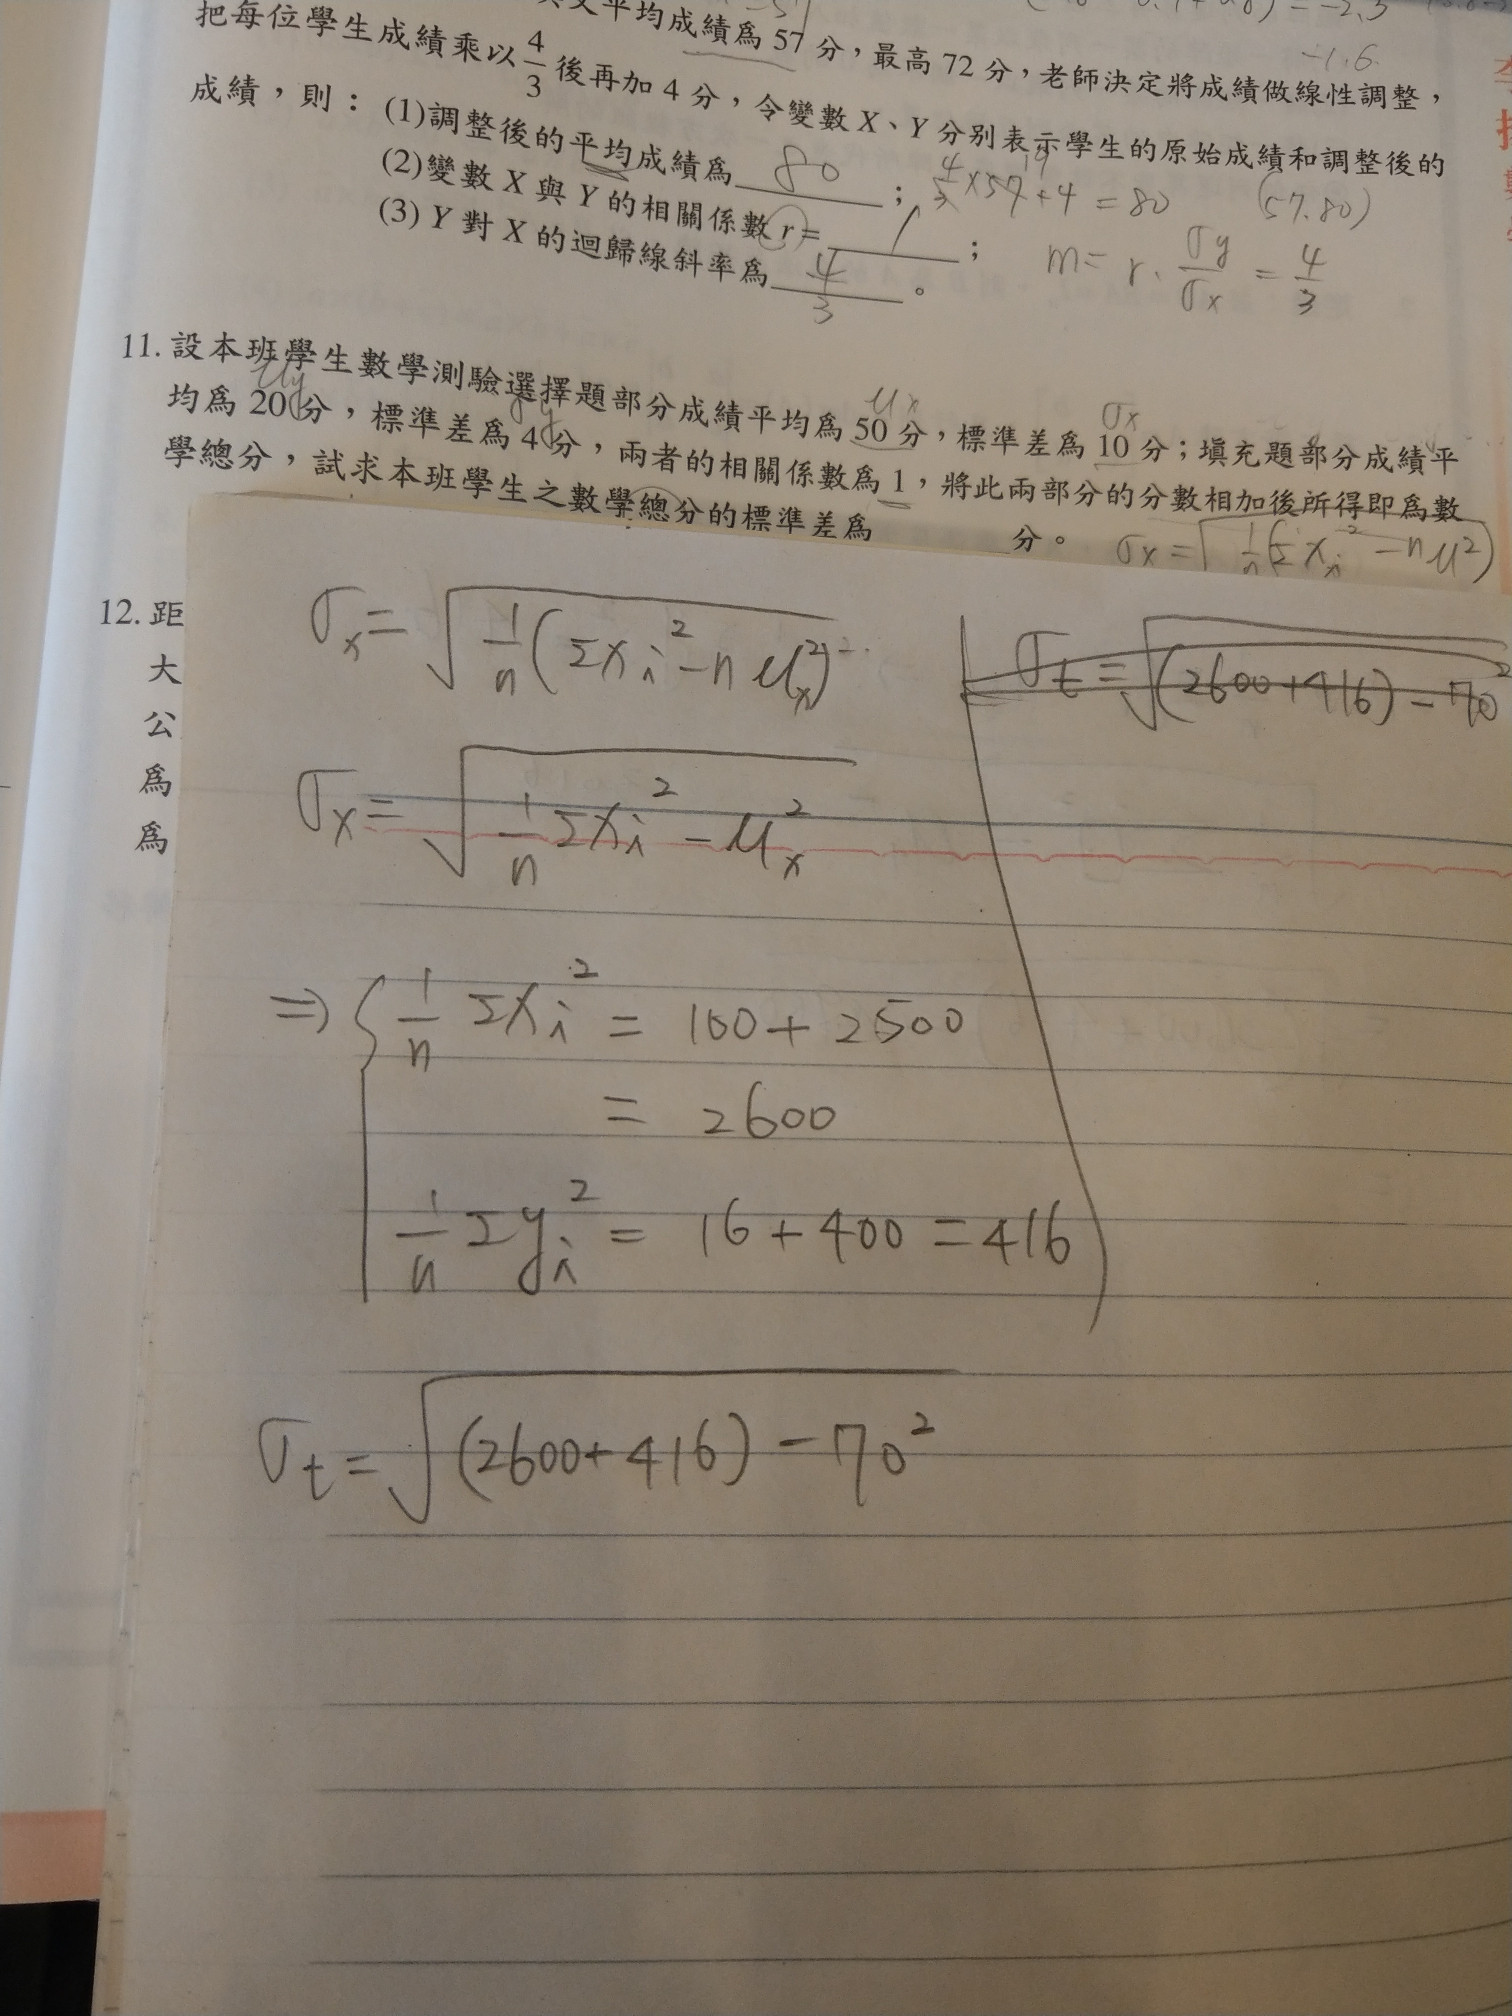 文平均成績為57分，最高72分，老師決定將成績做線性調整，
-1.6
把每位學生成績乘以4/3後再加4分，令變數X、Y分別表示學生的原始成績和調整後的
成績，則：(1)調整後的平均成績為 80 ； 4/3×57+4=80 (57.80)
(2)變數X與Y的相關係數r= 1 ；
(3)Y對X的迴歸線斜率為 4/3 。 m=r·σy/σx=4/3
11. 設本班學生數學測驗選擇題部分成績平均為50分，標準差為10分；填充題部分成績平
均為20分，標準差為4分，兩者的相關係數為1，將此兩部分的分數相加後所得即為數
學總分，試求本班學生之數學總分的標準差為 分。
μy σy μx σx
σx=√(1/n(Σxi²-nμ²))
12. 距
大
公
為
為
σx=√(1/n(Σxi²-nμx²))
σt=√((2600+416)-70²)
σx=√(1/nΣxi²-μx²)
⇒{1/n Σxi²=100+2500
=2600
1/n Σyi²=16+400=416
σt=√((2600+416)-70²)